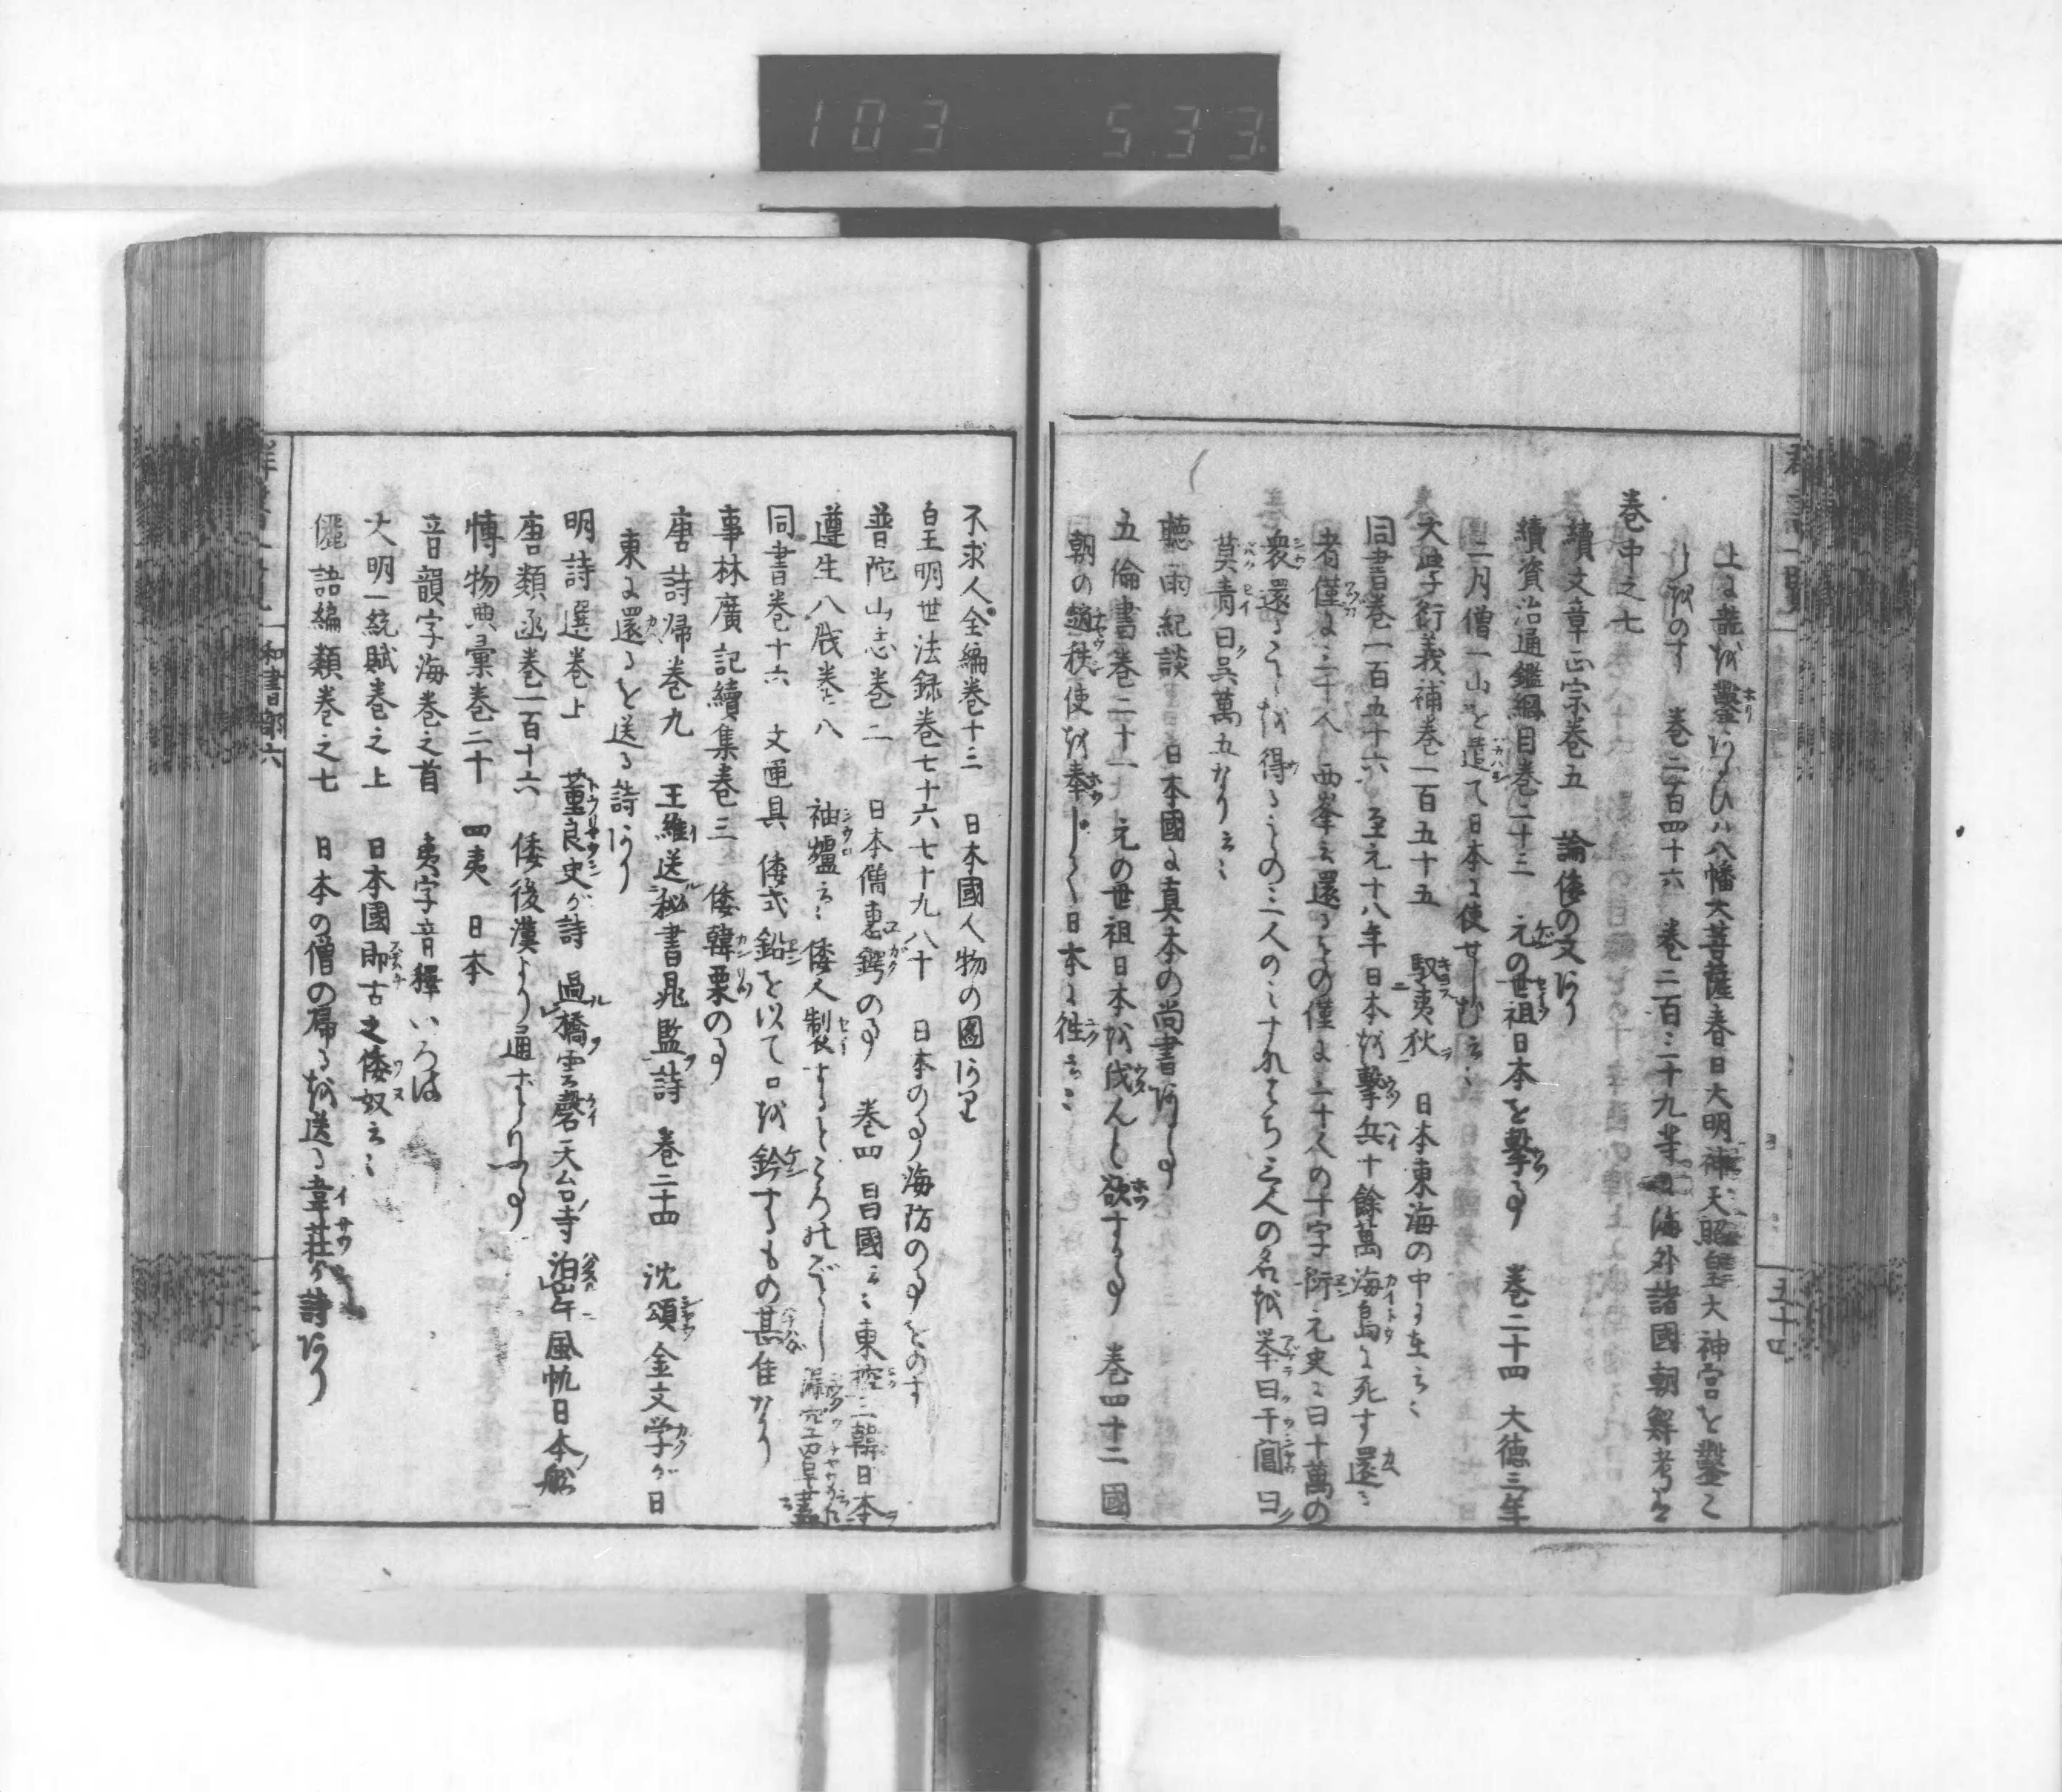 103 533
上に龍を鑿あるひハ八幡大菩薩春日大明神天照皇大神宮と鑿て
巻二百四十六 巻二百三十九等に海外諸國朝鮮考
巻中之七
續文章正宗巻五 論倭の文あり
續資治通鑑綱目巻二十三 元の世祖日本を擊事 巻二十四 大徳三年
二月僧一山を遣て日本に使せしむ云〻
大學衍義補巻一百五十五 馭夷狄 日本東海の中に在云〻
同書巻一百五十六 至元十八年日本を擊兵十餘萬海島に死す還る
者僅に三十人 西峯云還るもの僅に三十人の十字衍元史に曰十萬の
衆還ることを得るもの三人のミすなハち三人の名を挙曰干閶曰
莫青曰呉萬五なり云〻
聽雨紀談 日本國に真本の尚書ある事
五倫書巻二十一 元の世祖日本を伐んと欲する事 巻四十二 國
朝の趙秩使を奉じて日本に徃云〻
不求人全編巻十三 日本國人物の圖あり
皇明世法録巻七十六七十九八十 日本の事海防の事をのす
普陀山志巻二 日本僧惠鍔の事 巻四 昌國云〻東控三韓日本
遵生八牋巻之八 袖爐云〻倭人制するところのごとし
同書巻十六 文匣具 倭式鉛を以て口を鈐するもの甚佳なり
事林廣記續集巻三 倭韓栗の事
唐詩帰巻九 王維送秘書晁監詩 巻二十四 沈頌金文学が日
東に還るを送る詩あり
明詩選巻上 董良史が詩 過橋雲磬天台寺 泊岸風帆日本船
唐類函巻一百十六 倭後漢より通ずる事
博物典彙巻二十 四夷 日本
音韻字海巻之首 夷字音釋 いろは
大明一統賦巻之上 日本國即古之倭奴云〻
儷語編類巻之七 日本の僧の帰るを送る韋荘が詩あり
和書部六
五十四